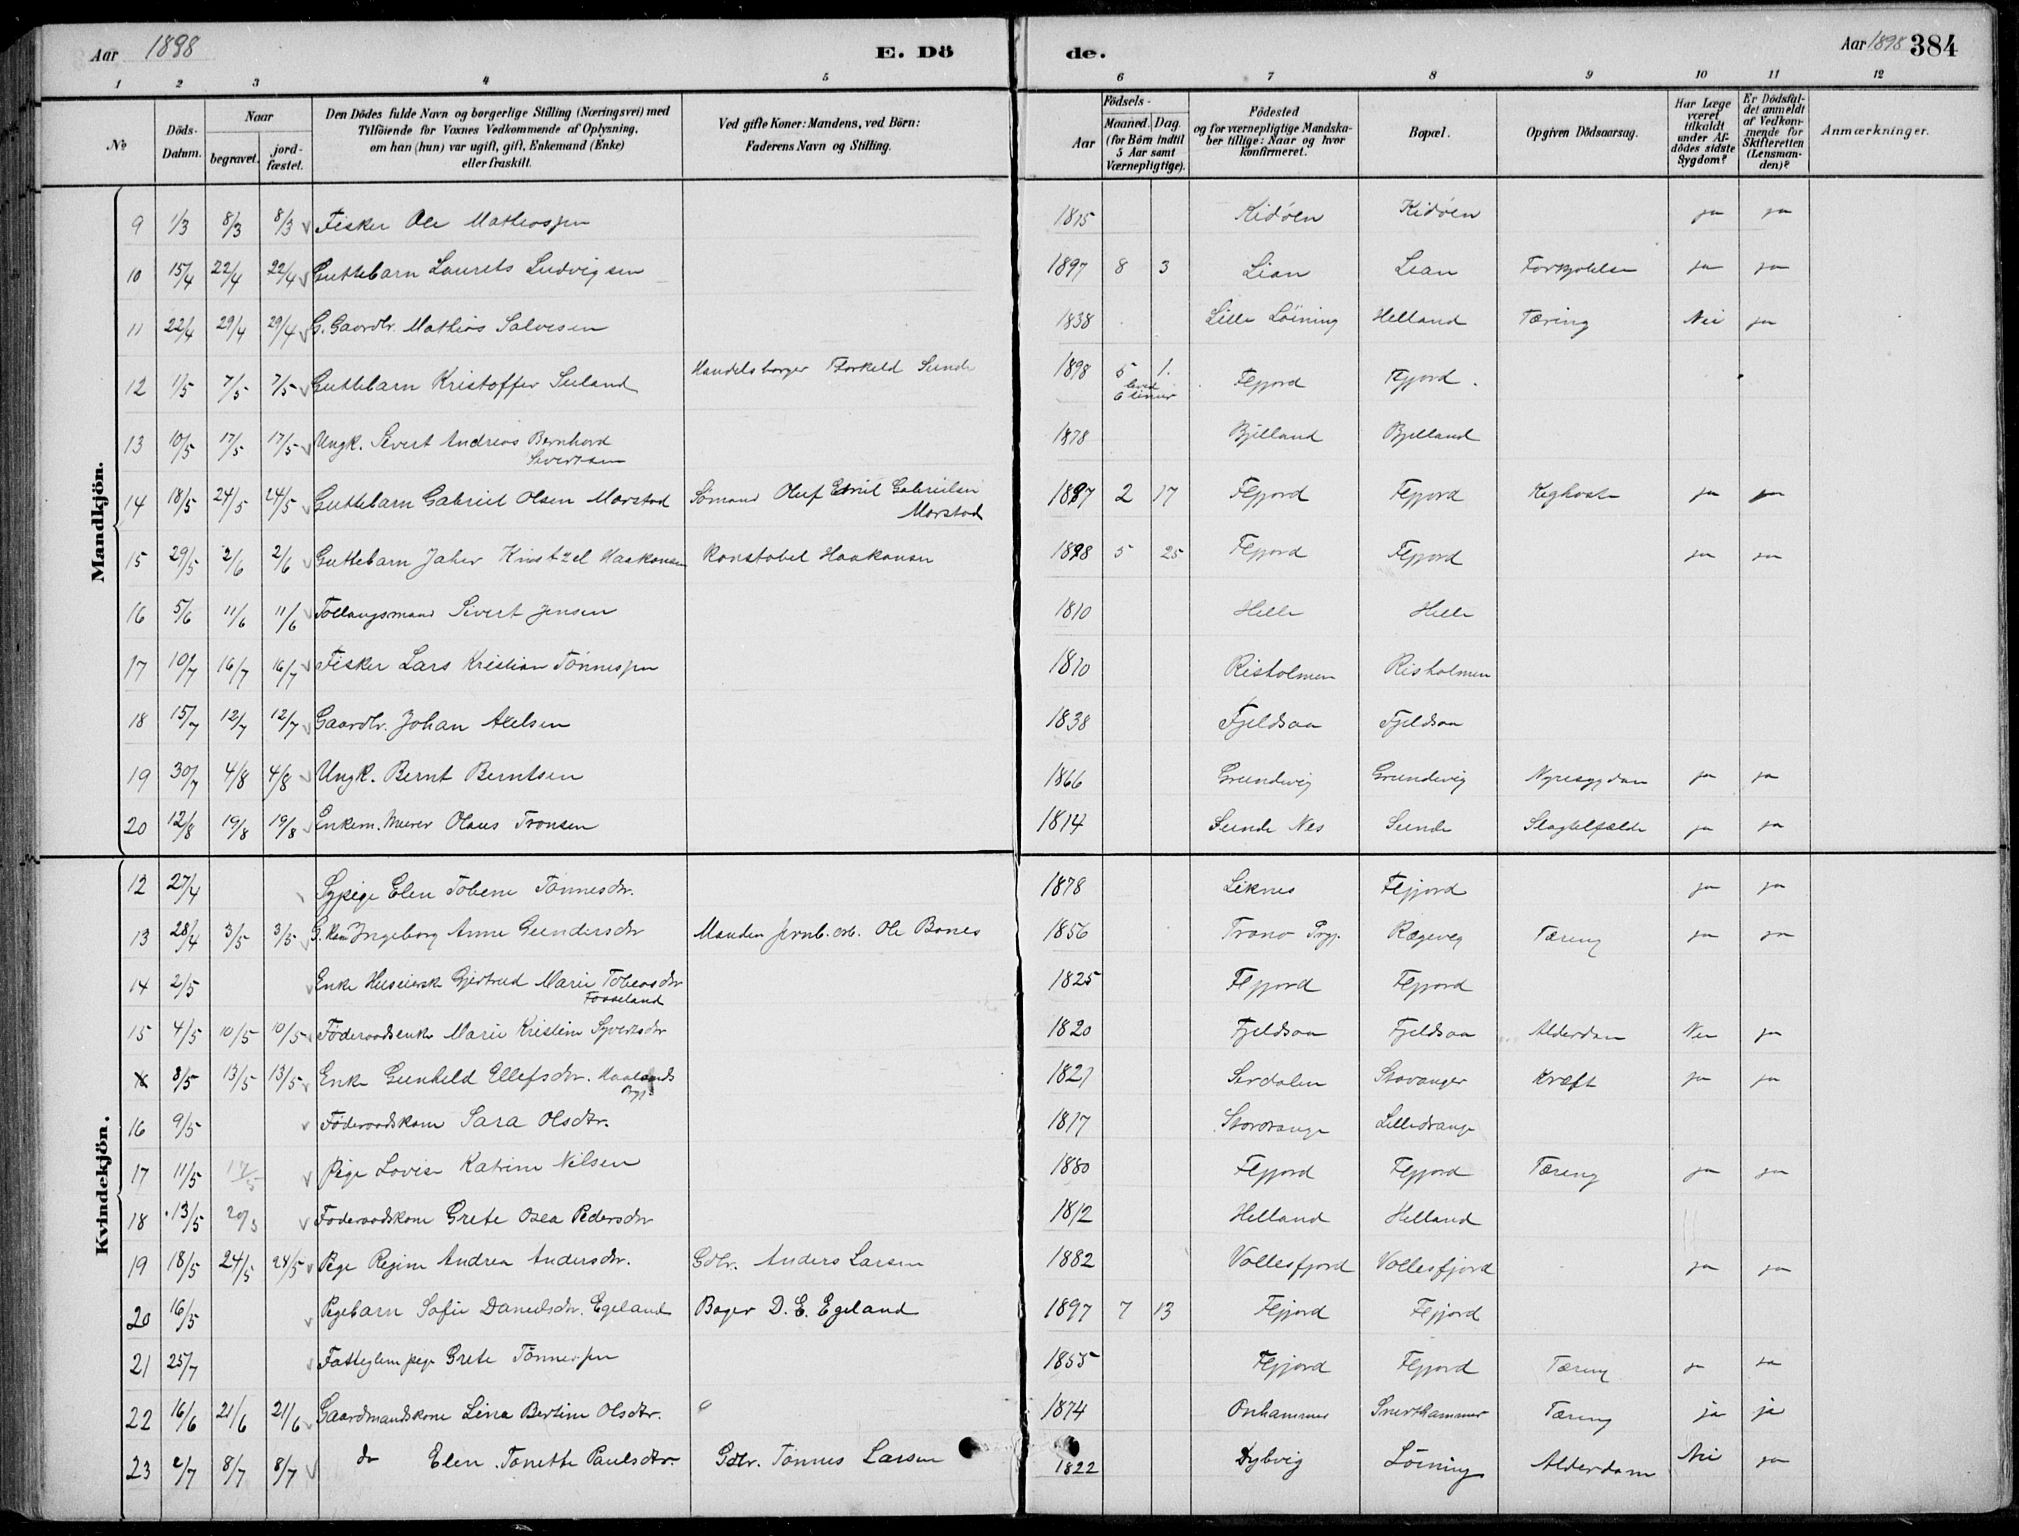 Aar 1898 E. Döde. Aar 1898 384
1 2 3 4 5 6 7 8 9 10 11 12
No
Döds-Datum.
Naar
begravet.
jordfæstet.
Den Dödes fulde Navn og borgerlige Stilling (Næringsvei) med
Tilföiende for Voxnes Vedkommende af Oplysning,
om han (hun) var ugift, gift, Enkemand (Enke)
eller fraskilt.
Ved gifte Koner: Mandens, ved Börn:
Faderens Navn og Stilling.
Födsels-
Aar
Maaned. Dag.
(for Börn indtil
5 Aar samt
Værnepligtige).
Födested
og for værnepligtige Mandskaber tillige: Naar og hvor
konfirmeret.
Bopæl.
Opgiven Dödsaarsag.
Har Læge
været
tilkaldt
under Afdödes sidste
Sygdom?
Er Dödsfaldet anmeldt
af Vedkommende for
Skifteretten
(Lensmanden)?
Anmærkninger.
Mandkjön.
9 1/3 8/3 8/3 Fisker Ole Mathiassen 1815 Kidöen Kidöen ja ja
10 15/4 22/4 22/4 Guttebarn Laurets Ludvigsen 1897 8 3 Lian Lian Forkjølelse ja ja
11 22/4 29/4 29/4 G. Gaardbr. Mathias Salvesen 1838 Lille Löining Helland Tæring Nei ja
12 1/5 7/5 7/5 Guttebarn Kristoffer Seland Handelsborger Thorkeld Sunde 1898 5 1. levd 6 timer Flejord Flejord
13 10/5 17/5 17/5 Ungk. Sivert Andreas Bernhard Sivertsen 1878 Bjelland Bjelland
14 18/5 24/5 24/5 Guttebarn Gabriel Olsen Marstad Sömand Oluf Emil Gabrielsen Marstad 1897 2 17 Flejord Flejord Kighoste ja ja
15 29/5 2/6 2/6 Guttebarn Haakonsen Konstabel Haakonsen 1898 5 25 Flejord Flejord ja ja
16 5/6 11/6 11/6 Sivert Jensen 1810 Helle Helle
17 10/7 16/7 16/7 Fisker Lars Kristian Tönnessen 1810 Risholmen Risholmen
18 15/7 12/7 12/7 Gaardbr. Johan Axelsen 1838 Fjeldsaa Fjeldsaa
19 30/7 4/8 4/8 Ungk. Bernt Berntsen 1866 Grundevig Grundevig Nyresygdom ja ja
20 12/8 19/8 19/8 Enkem. Murer Olaus Tronsen 1814 Sunde Nes Sunde Slagtilfælde ja ja
Kvindekjön.
12 27/4 Sypige Elen Tobine Tönnesdtr. 1878 Liknes Flejord ja ja
13 28/4 3/5 3/5 G. Kone Ingeborg Anne Gundersdtr Manden Jernb. arb. Ole Bones 1856 Tranö Prgj. Rægevig Tæring ja ja
14 2/5 Enke Husierske Gjertrud Marie Tobiasdtr Fosseland 1825 Flejord Flejord
15 4/5 10/5 10/5 Föderaadsenke Marie Kristine Syvertsdtr 1820 Fjeldsaa Fjeldsaa Alderdom Nei ja
8/5 13/5 13/5 Enke Gunhild Ellefsdtr. 1827 Serdalen Stavanger Kræft ja ja
16 9/5 Föderaadskone Sara Olsdtr. 1817 Stordrange Lilledrange
17 11/5 17/5 Pige Lovise Katrine Nilsen 1880 Flejord Flejord Tæring ja ja
18 13/5 20/5 Föderaadskone Grete Osea Pedersdtr 1812 Helland Helland
19 18/5 24/5 24/5 Pige Regine Andrea Andersdtr. Gdbr. Anders Larsen 1882 Vollesfjord Vollesfjord ja ja
20 16/5 Pigebarn Sofie Danielsdtr. Egeland Bager D. E. Egeland 1897 7 13 Flejord Flejord
21 25/7 Fattiglem pige Grete Tönnessen 1855 Flejord Flejord Tæring ja ja
22 16/6 21/6 21/6 Gaardmandskone Lina Bertine Olsdtr. 1874 Onhammer Snerthammer Tæring ja ja
23 2/7 8/7 8/7 do Elen Tonette Paulsdtr. Gdbr. Tönnes Larsen 1822 Dybvig Löining Alderdom Nei ja